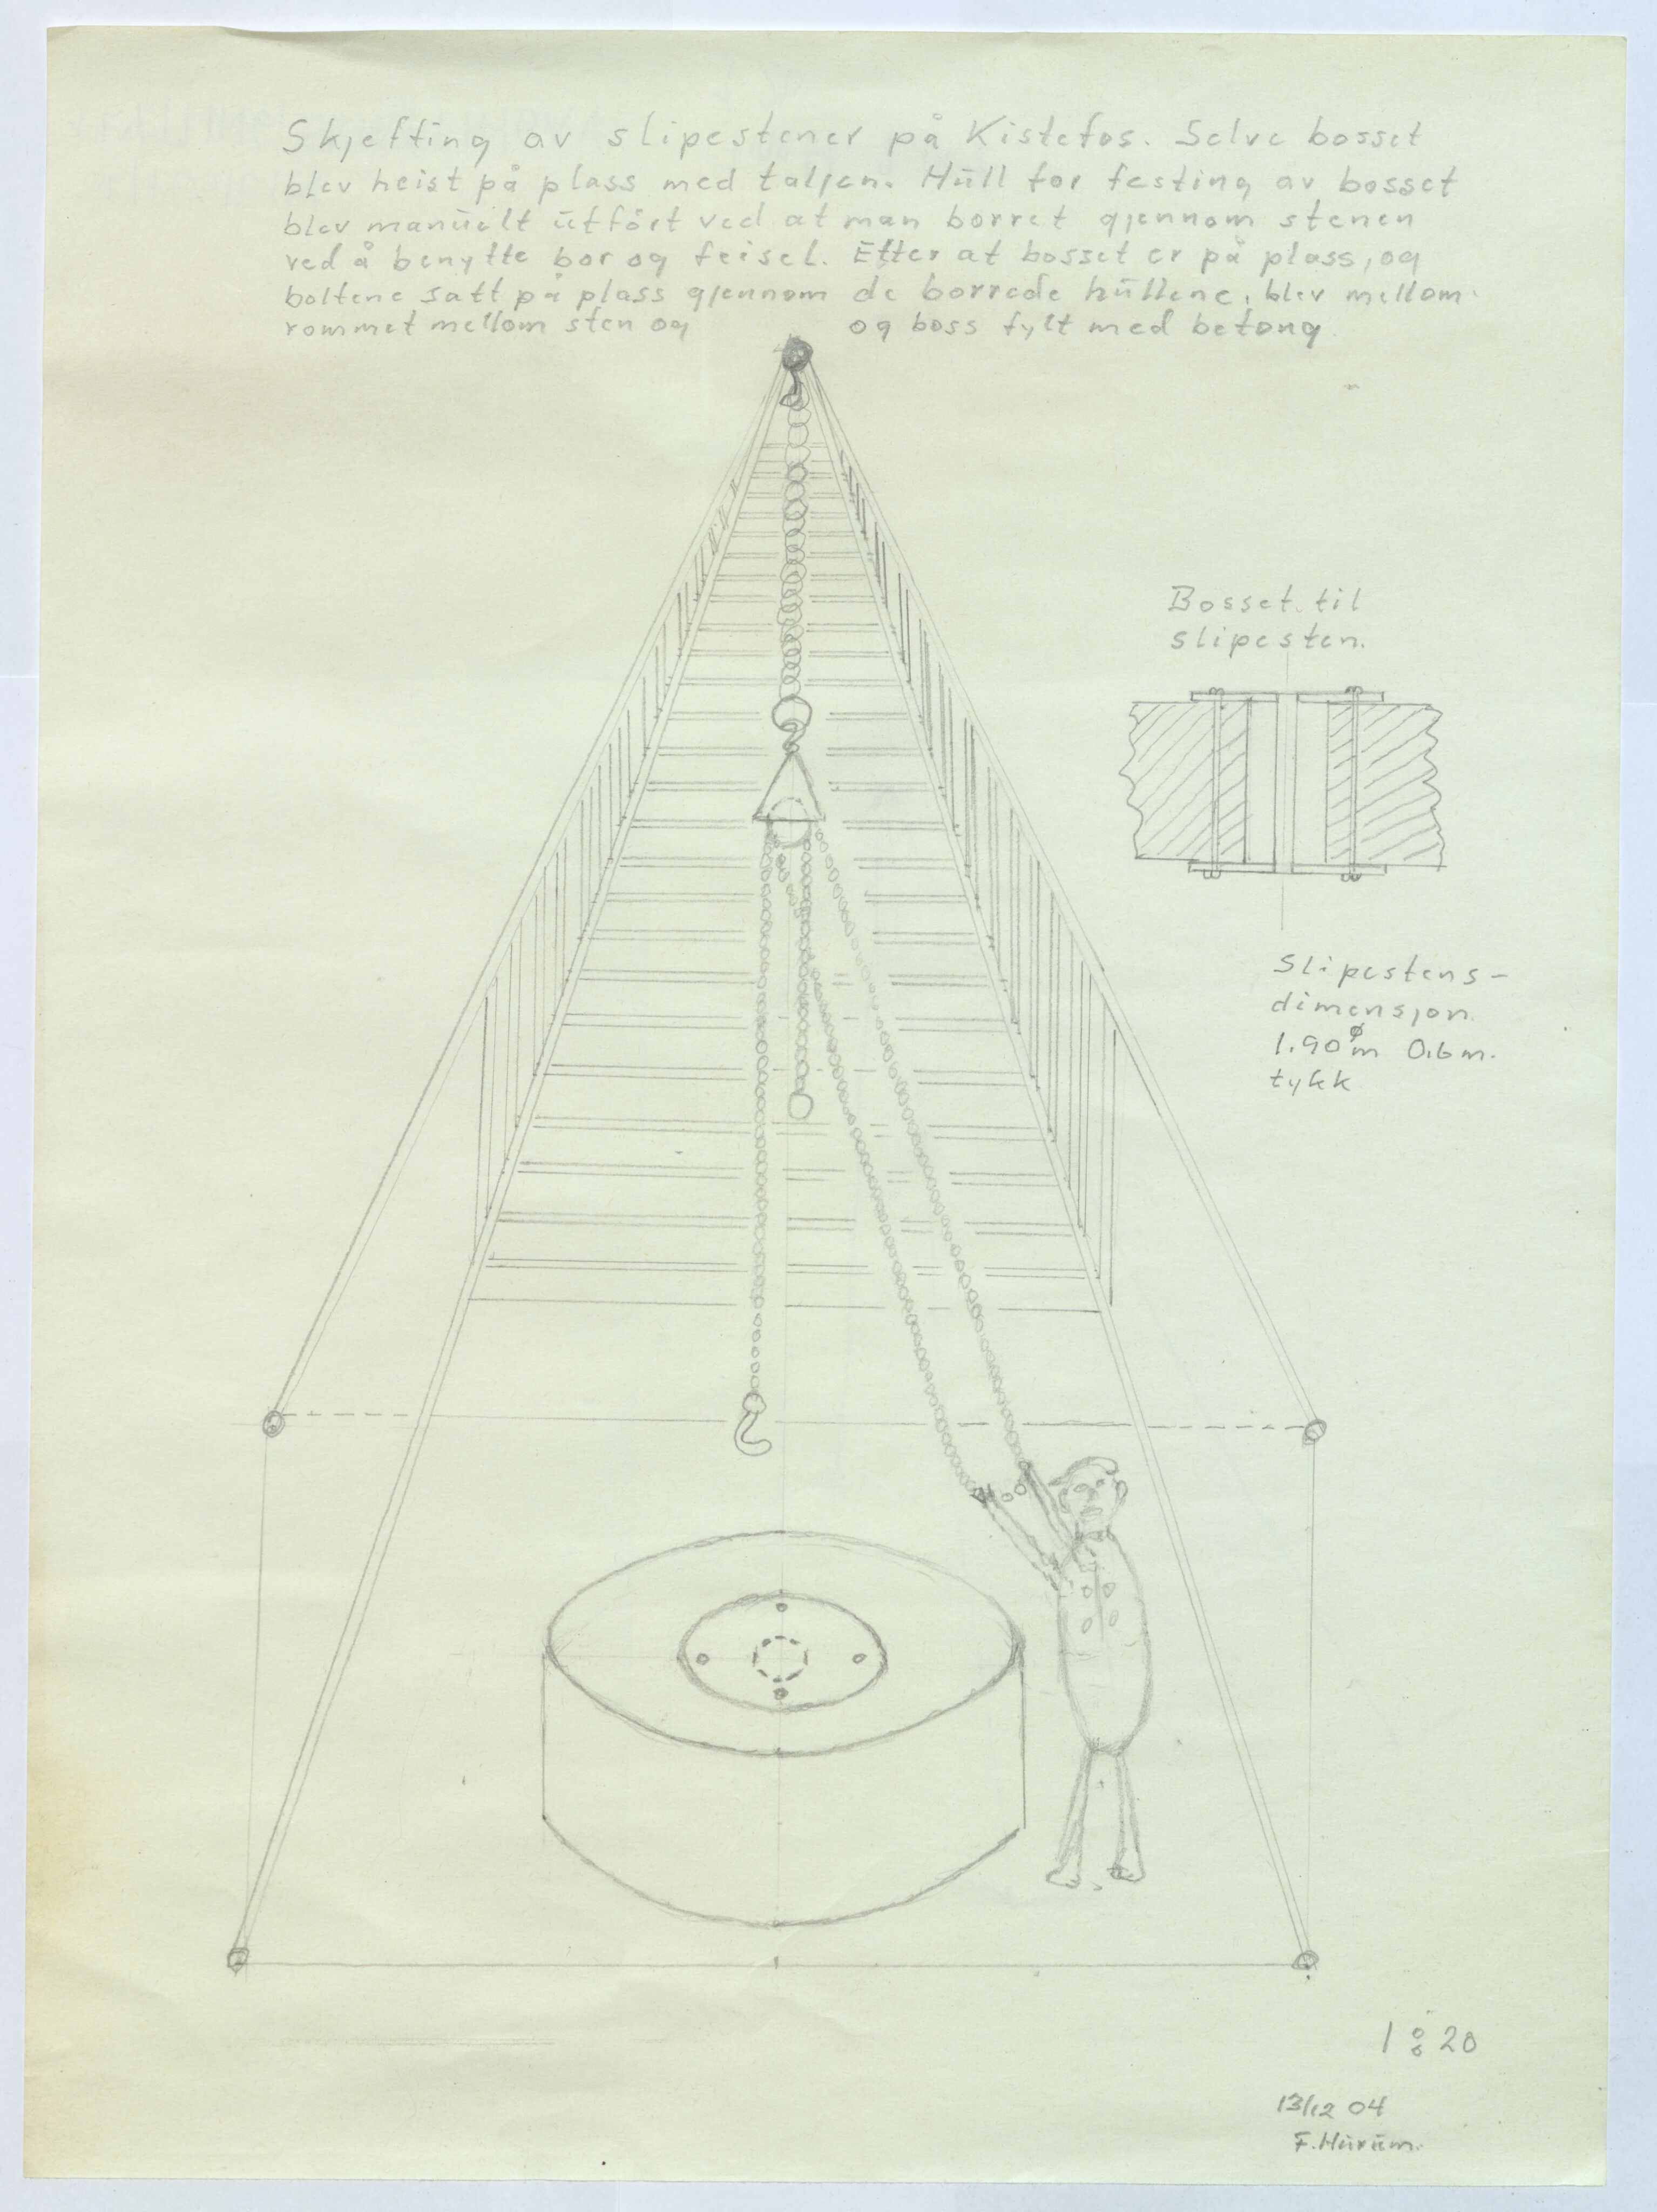 Skjefting av slipestener på Kistefos. Selve bosset
blev heist på plass med taljen. Hŭll for festing av bosset
blev manŭelt ŭtfört ved at man borret gjennom stenen
ved å benytte bor og feisel. Efter at bosset er på plass, og
boltene satt på plass gjennom de borrede hŭllene, blev mellom-
rommet mellom sten og og boss fylt med betong
Bosset til
slipesten.
Slipestens-
dimensjon
1.90 ø m 0.6 m.
tykk
1:20
13/12 04
F. Hŭrŭm.